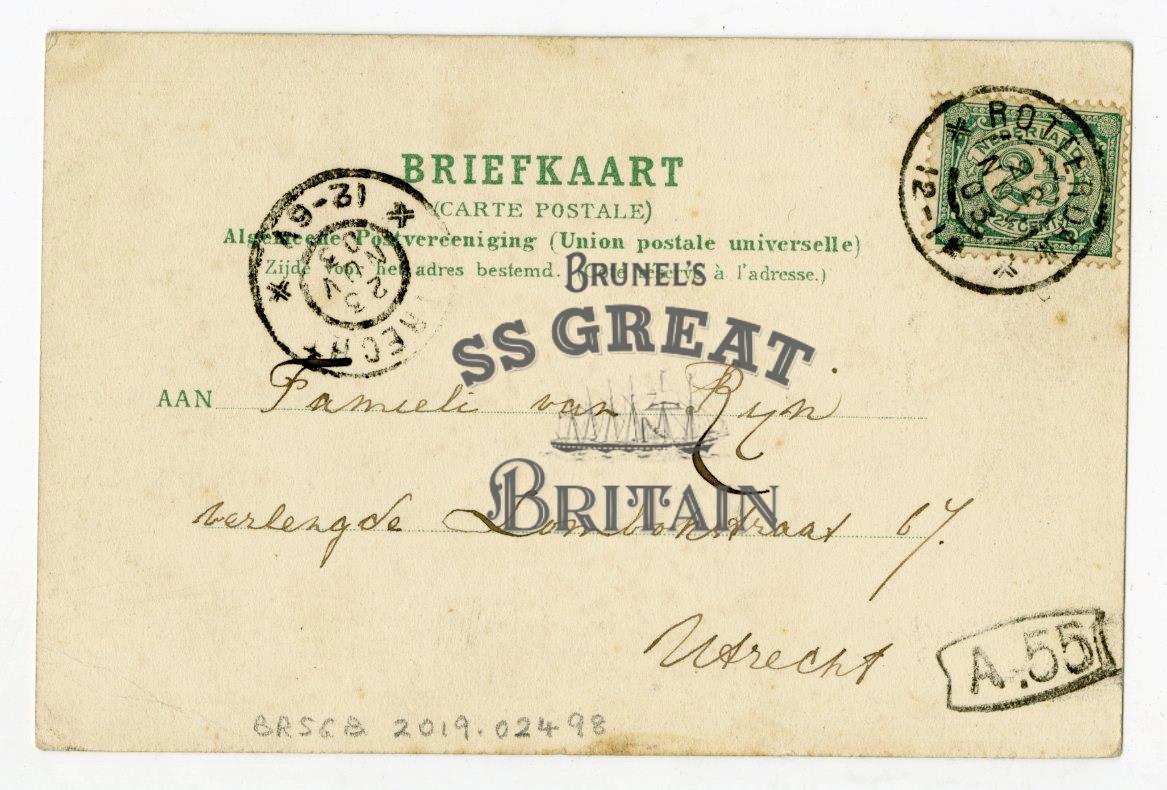 BRIEFKAART
(CARTE POSTALE)
Algemeene Postvereeniging (Union postale universelle)
Zijde voor het adres bestemd. (Côté réservé à l'adresse.)
AAN Famieli van Rijn
verlengde Lombokstraat 67.
Utrecht
NEDERLAND
2½ CENT
ROTTERDAM
12-1
NOV
03
12-6V
23
NOV
03
UTRECHT
BRUNEL'S
SS GREAT
BRITAIN
A.55
BRSGB 2019.02498